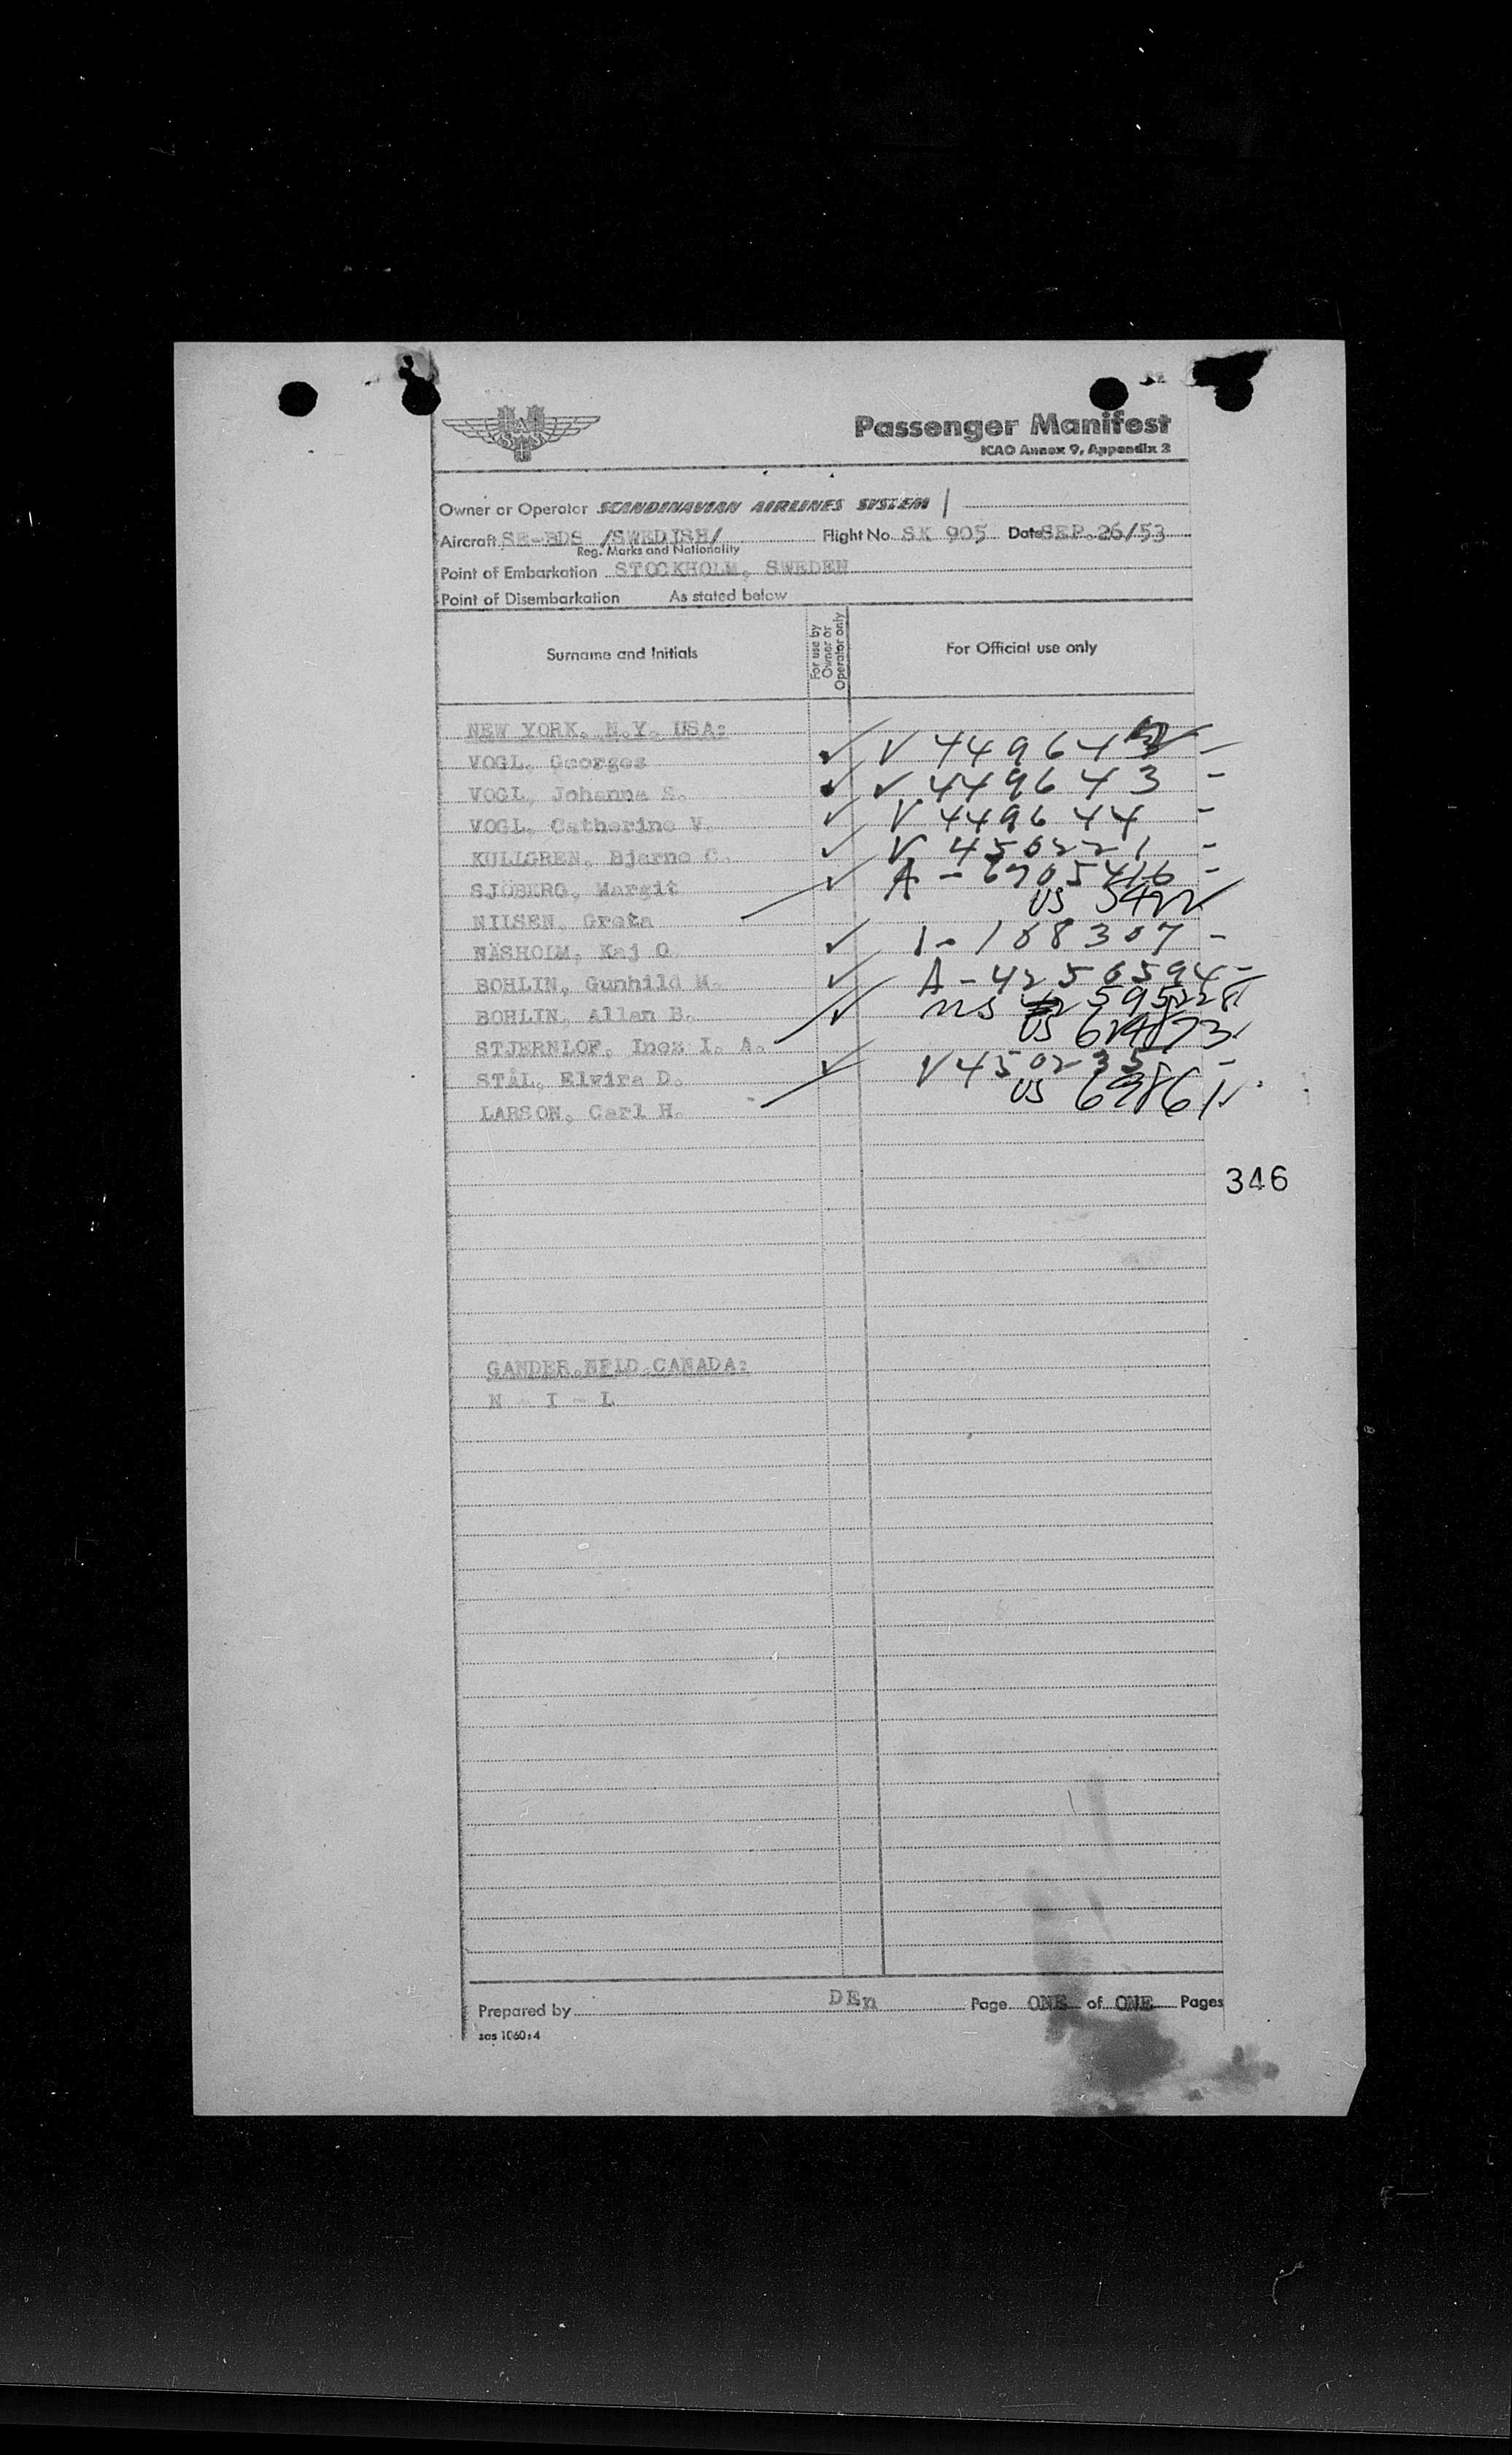 SAS
Passenger Manifest
ICAO Annex 9, Appendix 2
Owner or Operator SCANDINAVIAN AIRLINES SYSTEM
Aircraft SE-BDS /SWEDISH/ Flight No. SK 905 Date SEP.26/53
Reg. Marks and Nationality
Point of Embarkation STOCKHOLM, SWEDEN
Point of Disembarkation As stated below
Surname and Initials For use by Owner or Operator only For Official use only
NEW YORK, N.Y. USA:
VOGL, Georges ✓ V
VOGL, Johanna S. ✓ V 449643 -
VOGL, Catherine V. ✓ V 449644 -
KULLGREN, Bjarne C. ✓ V 450221 -
SJÖBERG, Margit ✓ A - 6905416 -
NILSEN, Greta US
NÄSHOLM, Kaj O. ✓ I-188307 -
BOHLIN, Gunhild M. ✓ A-4256594-
BOHLIN, Allan B. ✓ US 595228
STJERNLOF, Inez I. A. US
STÅL, Elvira D. ✓ V450235 -
LARSON, Carl H. US
346
GANDER.NFLD.CANADA:
N - I - L
Prepared by DEn Page ONE of ONE Pages
sas 1060:4